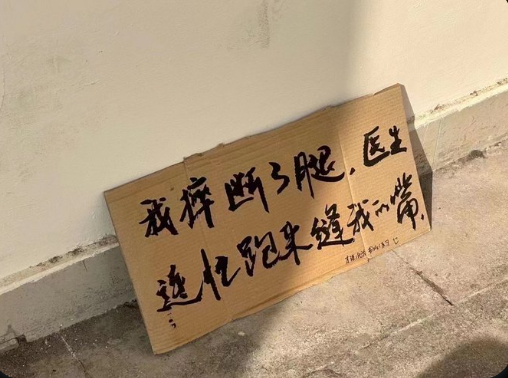 我摔断了腿，医生
连忙跑来缝我的嘴，